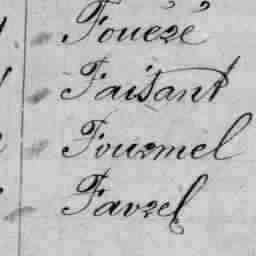 Fouezé
Faisant
Fourmel
Favrel